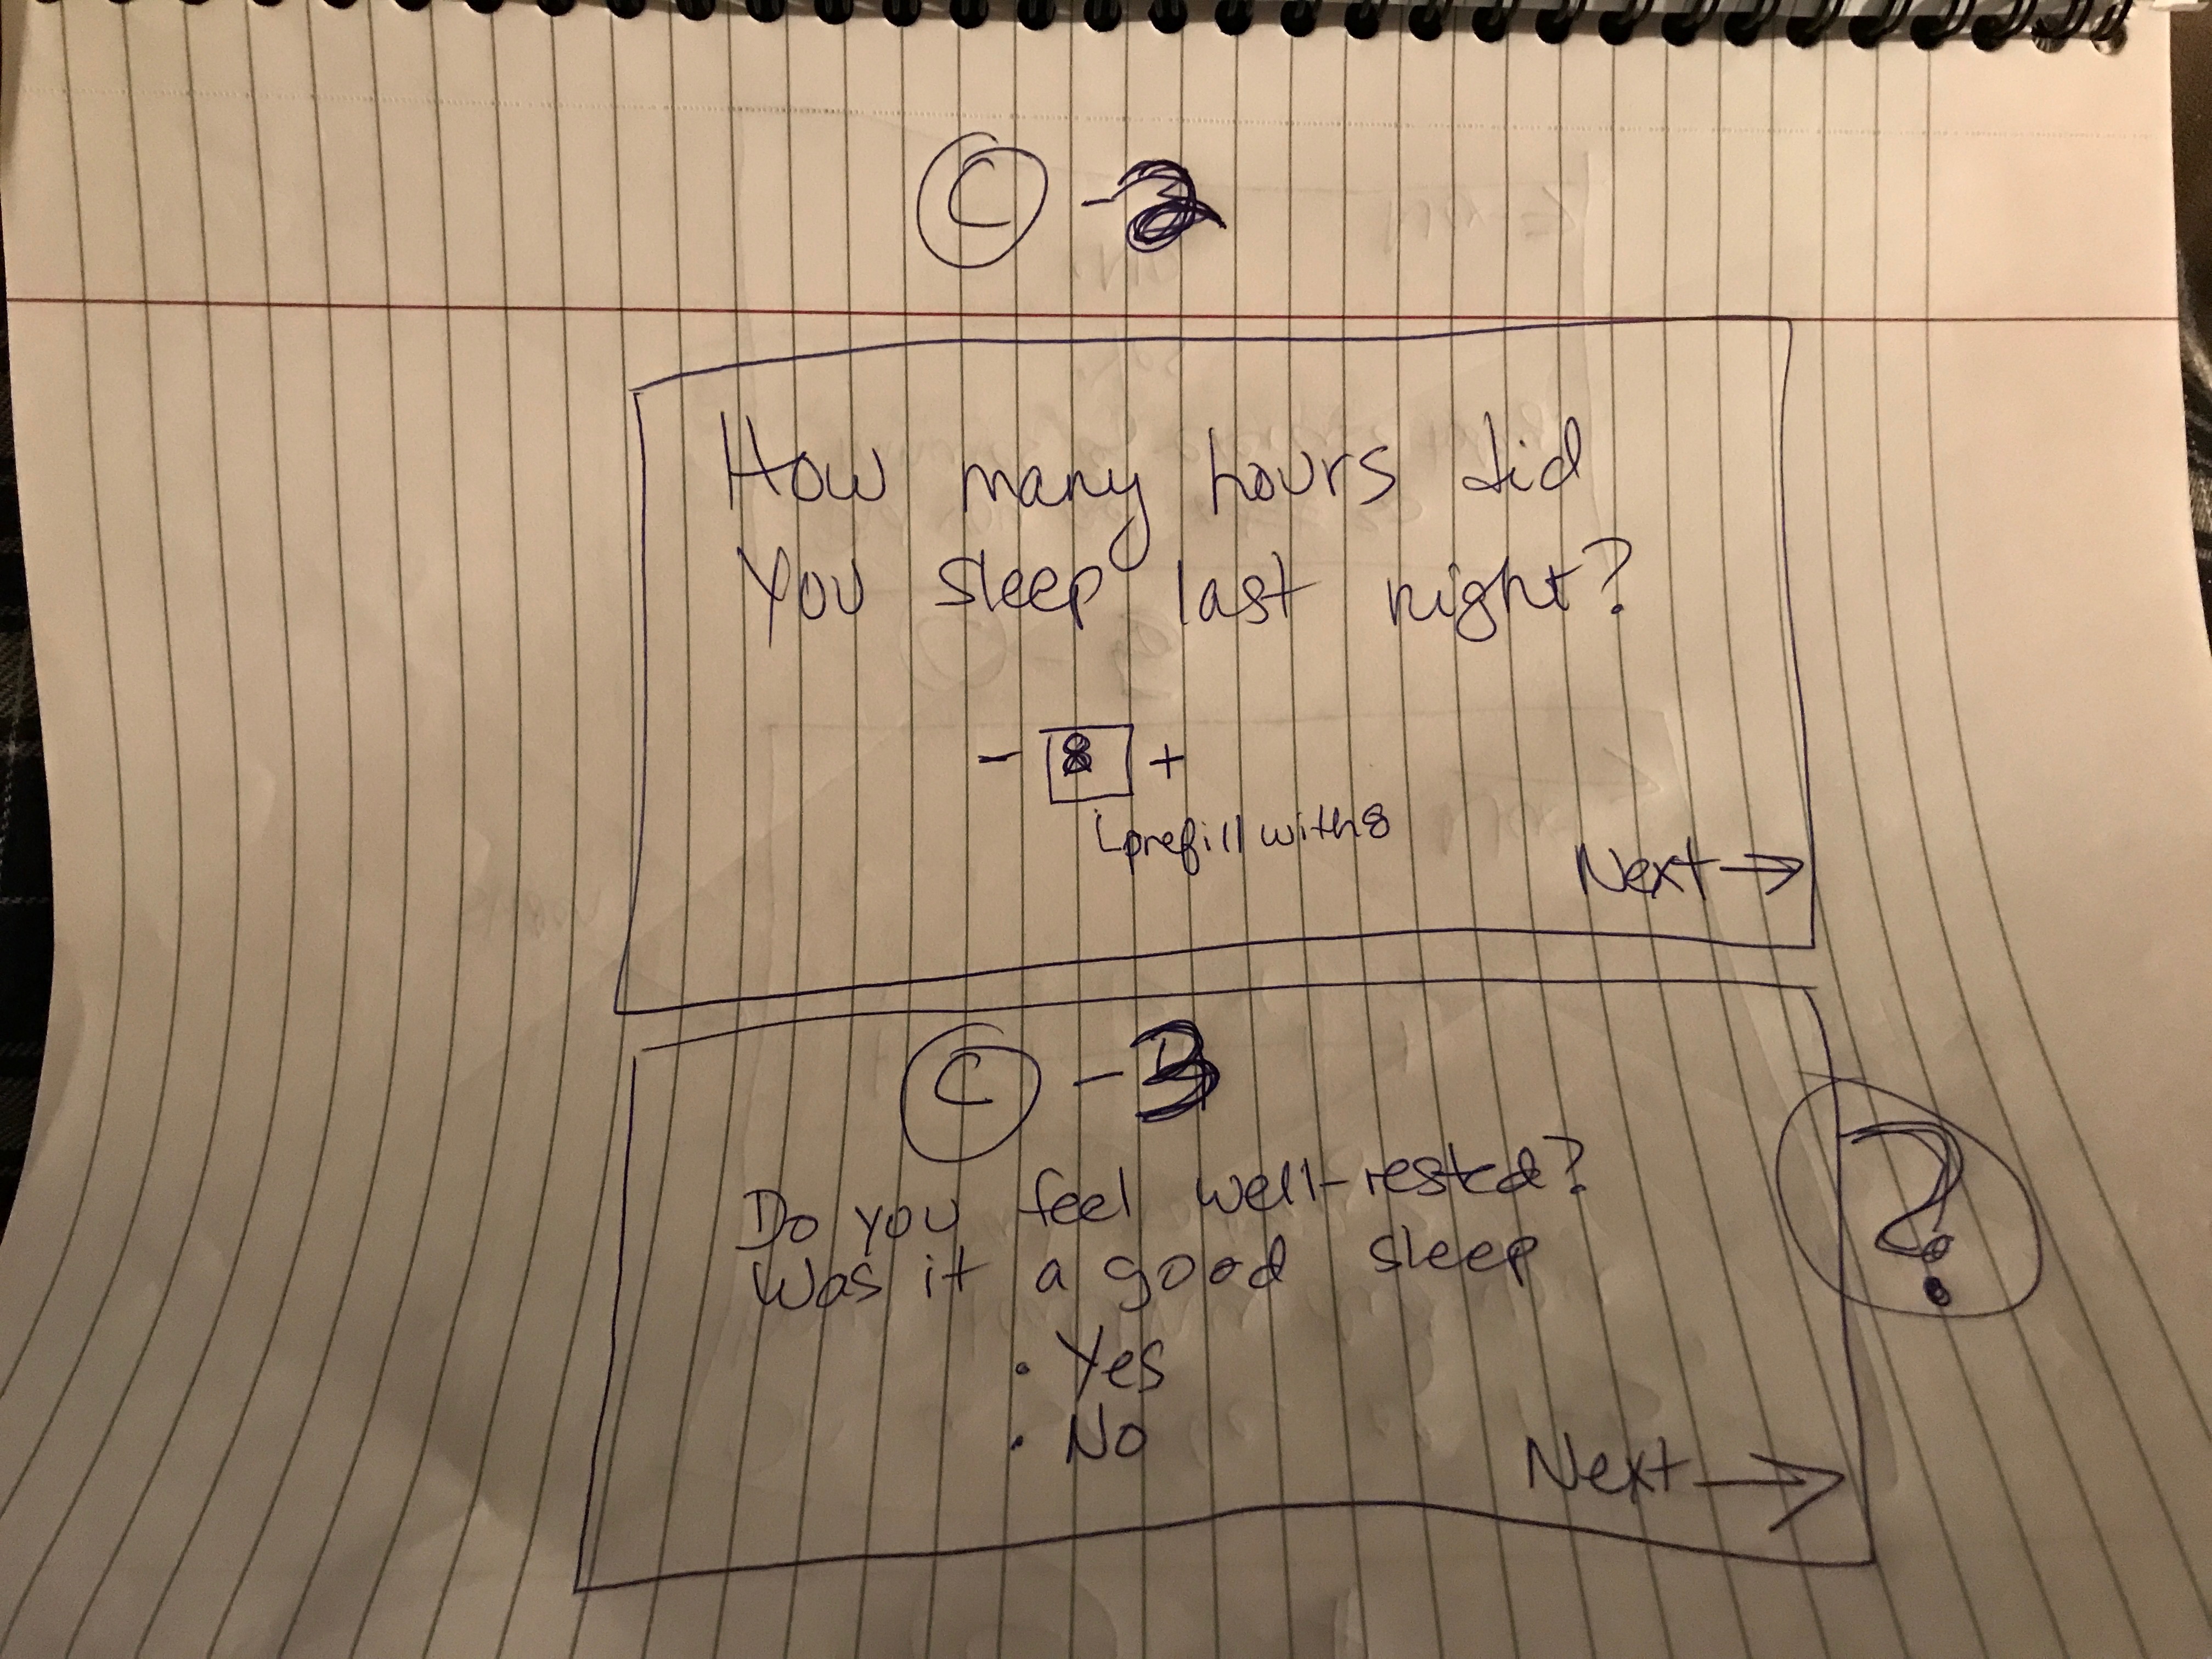 C - 2
How many hours did
You sleep last night?
- 8 +
prefill with 8
Next →
C - 3
Do you feel well-rested?
Was it a good sleep
?
• Yes
• No
Next →